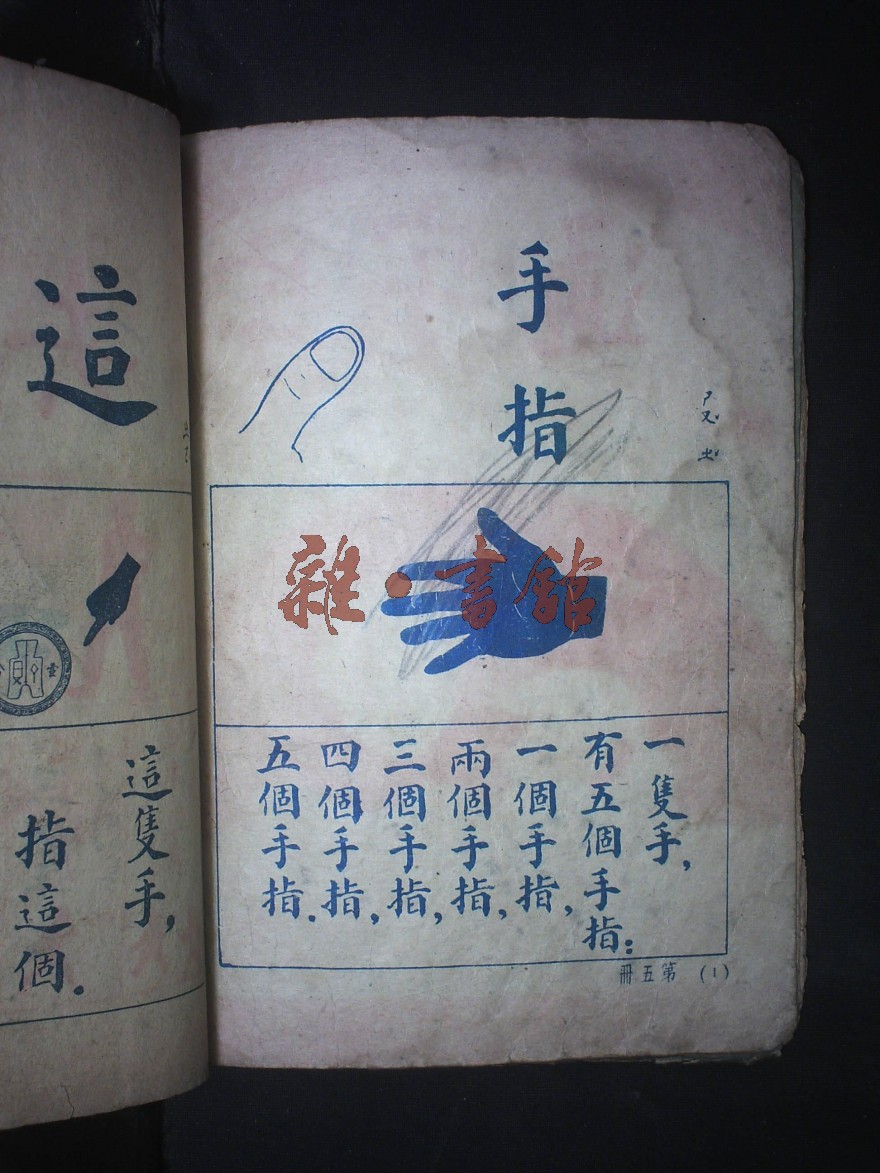 手指
ㄕㄡˇ
ㄓˇ
雜·書館
一隻手，
有五個手指：
一個手指，
兩個手指，
三個手指，
四個手指，
五個手指．
(1) 第五冊
這
這隻手，
指這個．